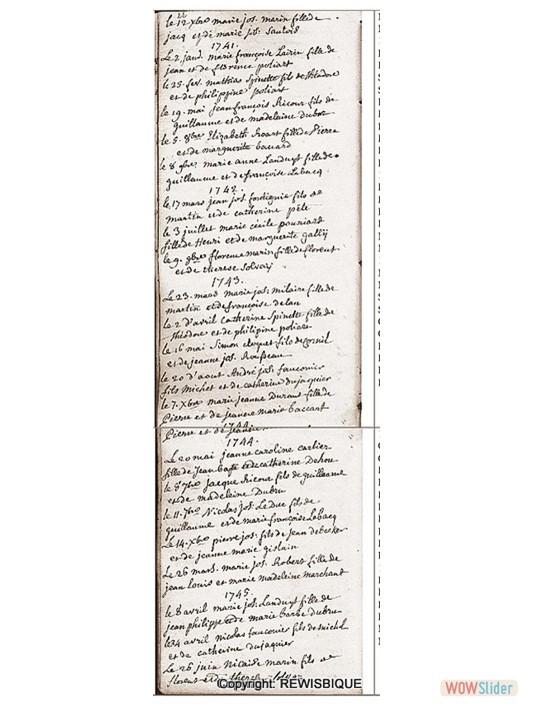 le 12 Xbre marie jos. marin fille de
jacq et de marie jos: Sautois
1741.
Le 2 janv. marie françoise Lairin fille de
jean et de florence poliart
le 25. fev. mathias Spinette fils de théodore
et de philippine poliart
le 19. mai jean françois Ricour fils de
guillaume et de madeleine dubru
le 5. 8bre Elizabeth Roart fille de Pierre
et de marguerite baccard
le 8 9bre marie anne Landuyt fille de
guillaume et de françoise Labacq
1742.
le 17 mars jean jos fils de
martin et de catherine
le 3 juillet marie cécile pouriart
fille de Henri et de marguerite gallij
le 9. 9bre florence marin fille de florent
et de therese Solvaij
1743.
Le 23. mars marie jos: milaire fille de
martin et de françoise delan
le 2 d'avril catherine Spinette fille de
théodore et de philipine poliart
le 16 mai Simon cloquet fils de
et de jeanne jos. Rousseau
le 20 d'aout André jos: fauconier
fils michel et de catherine dujaquier
le 7. Xbre marie jeanne Durant fille de
Pierre et de jeanne marie baccart
1744.
Pierre et de jeanne
1744.
Le 20 mai jeanne caroline carlier
fille de jean bapte et de catherine Dehou
le 3 7bre jacque Ricour fils de guillaume
et de madeleine Dubru
le 11. 7bre Nicolas jos: Le Duc fils de
guillaume et de marie françoise Labacq
Le 14. Xbre pierre jos: fils de jean debecker
et de jeanne marie gislain
Le 26 mars. marie jos. Robert fille de
jean Louis et marie madeleine marchant
1745.
le 8 avril marie jos: Landuyt fille de
jean philippe et de marie barbe Dubru
le 24 avril nicolas fauconier fils de michel
et de catherine dujaquier
Le 26 juin Nicaise marin fils de
florent et de therese
Copyright: REWISBIQUE
WOWSlider